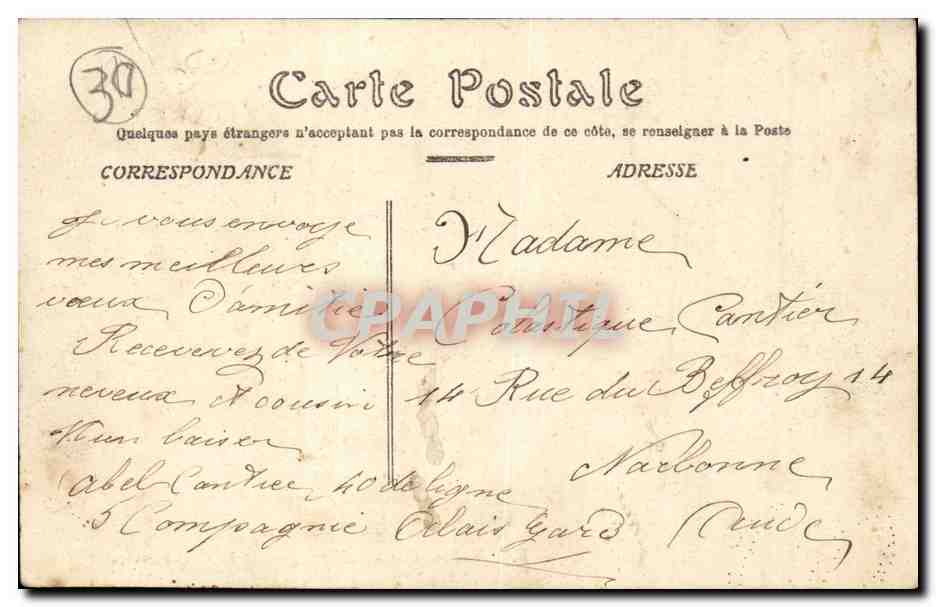 30
Carte Postale
Quelques pays étrangers n'acceptant pas la correspondance de ce côté, se renseigner à la Poste
CORRESPONDANCE
Je vous envoye
mes meilleures
vœux D'amitie
Recevevez de Votre
neveux Et cousin
un baiser
abel Cantier 40 de ligne
5 Compagnie Alais Gard
ADRESSE
Madame
Cantier
14 Rue du Beffroy 14
Narbonne
Aude
CPAPHIL